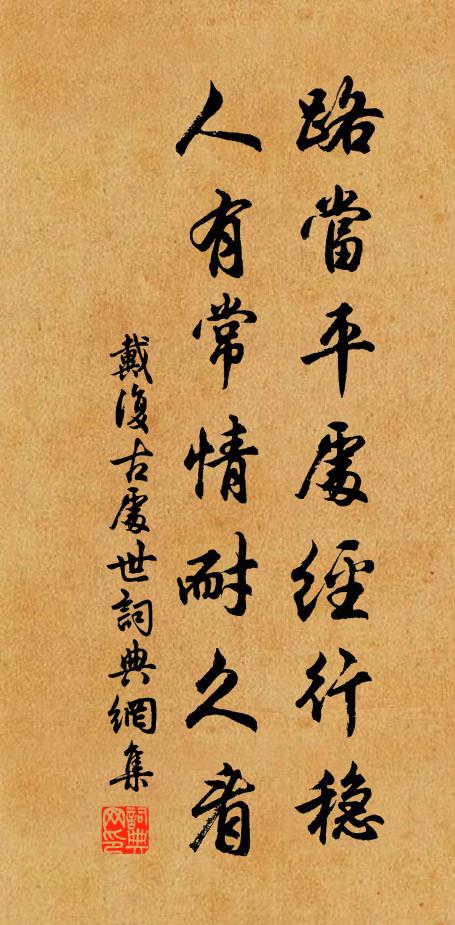 路當平處經行穩
人有常情耐久看
戴復古處世詞典網集
詞典網印